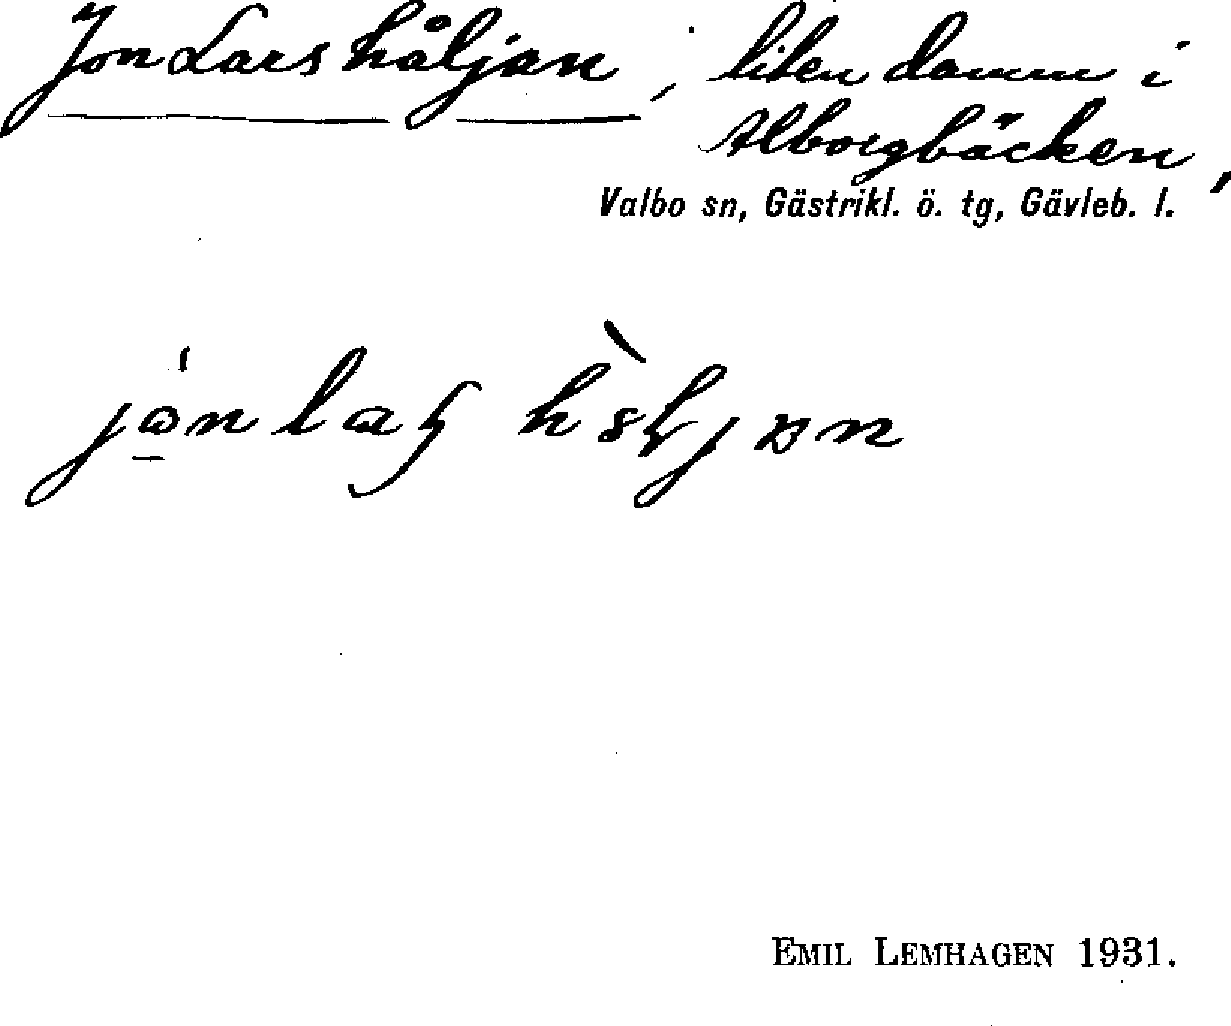 Jon Larshåljan, liten damm i
Alborgbäcken,
Valbo sn, Gästrikl. ö. tg, Gävleb. l.
EMIL LEMHAGEN 1931.